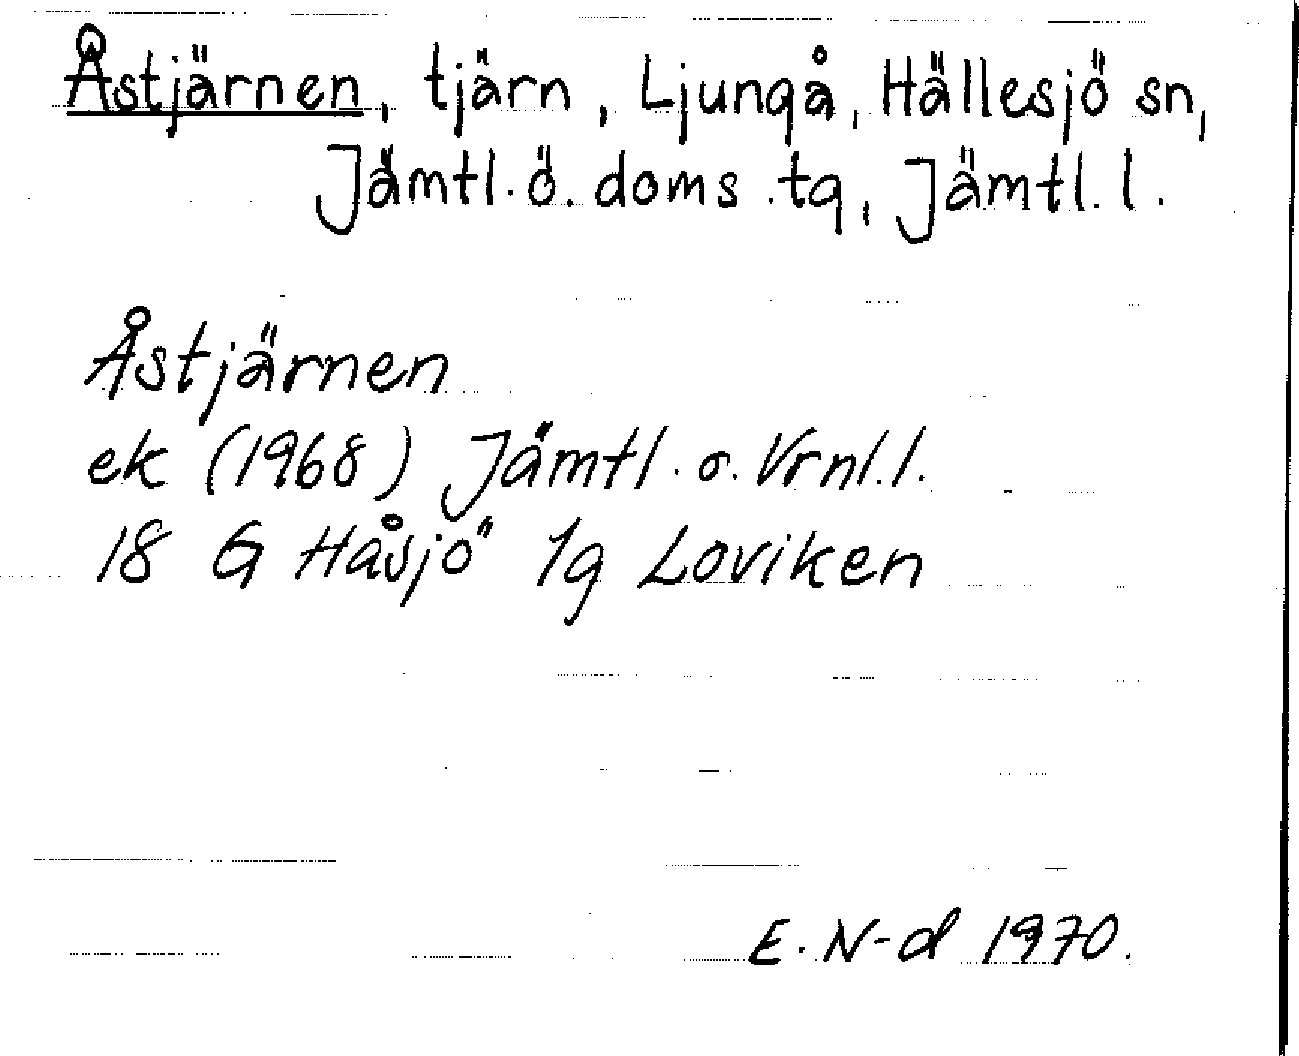 Åstjärnen, tjärn, Ljungå, Hällesjö sn,
Jämtl. ö. doms. tg, Jämtl. l.
Åstjärnen
ek (1968) Jämtl. o. Vrnl. l.
18 G Håsjö 1g Loviken
E. N-d 1970.